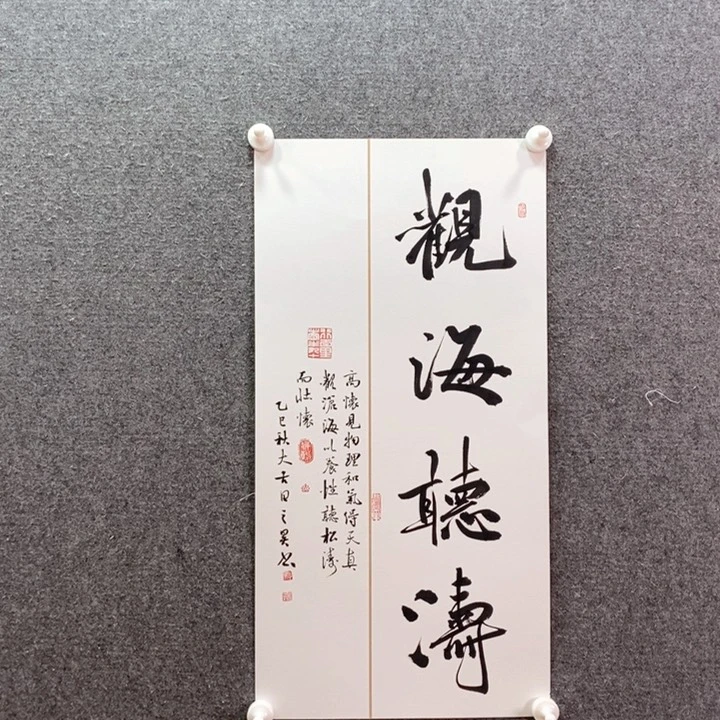 觀海聽濤
高懷見物理和氣得天真
觀滄海以養性聽松濤
而壯懷
乙巳秋大